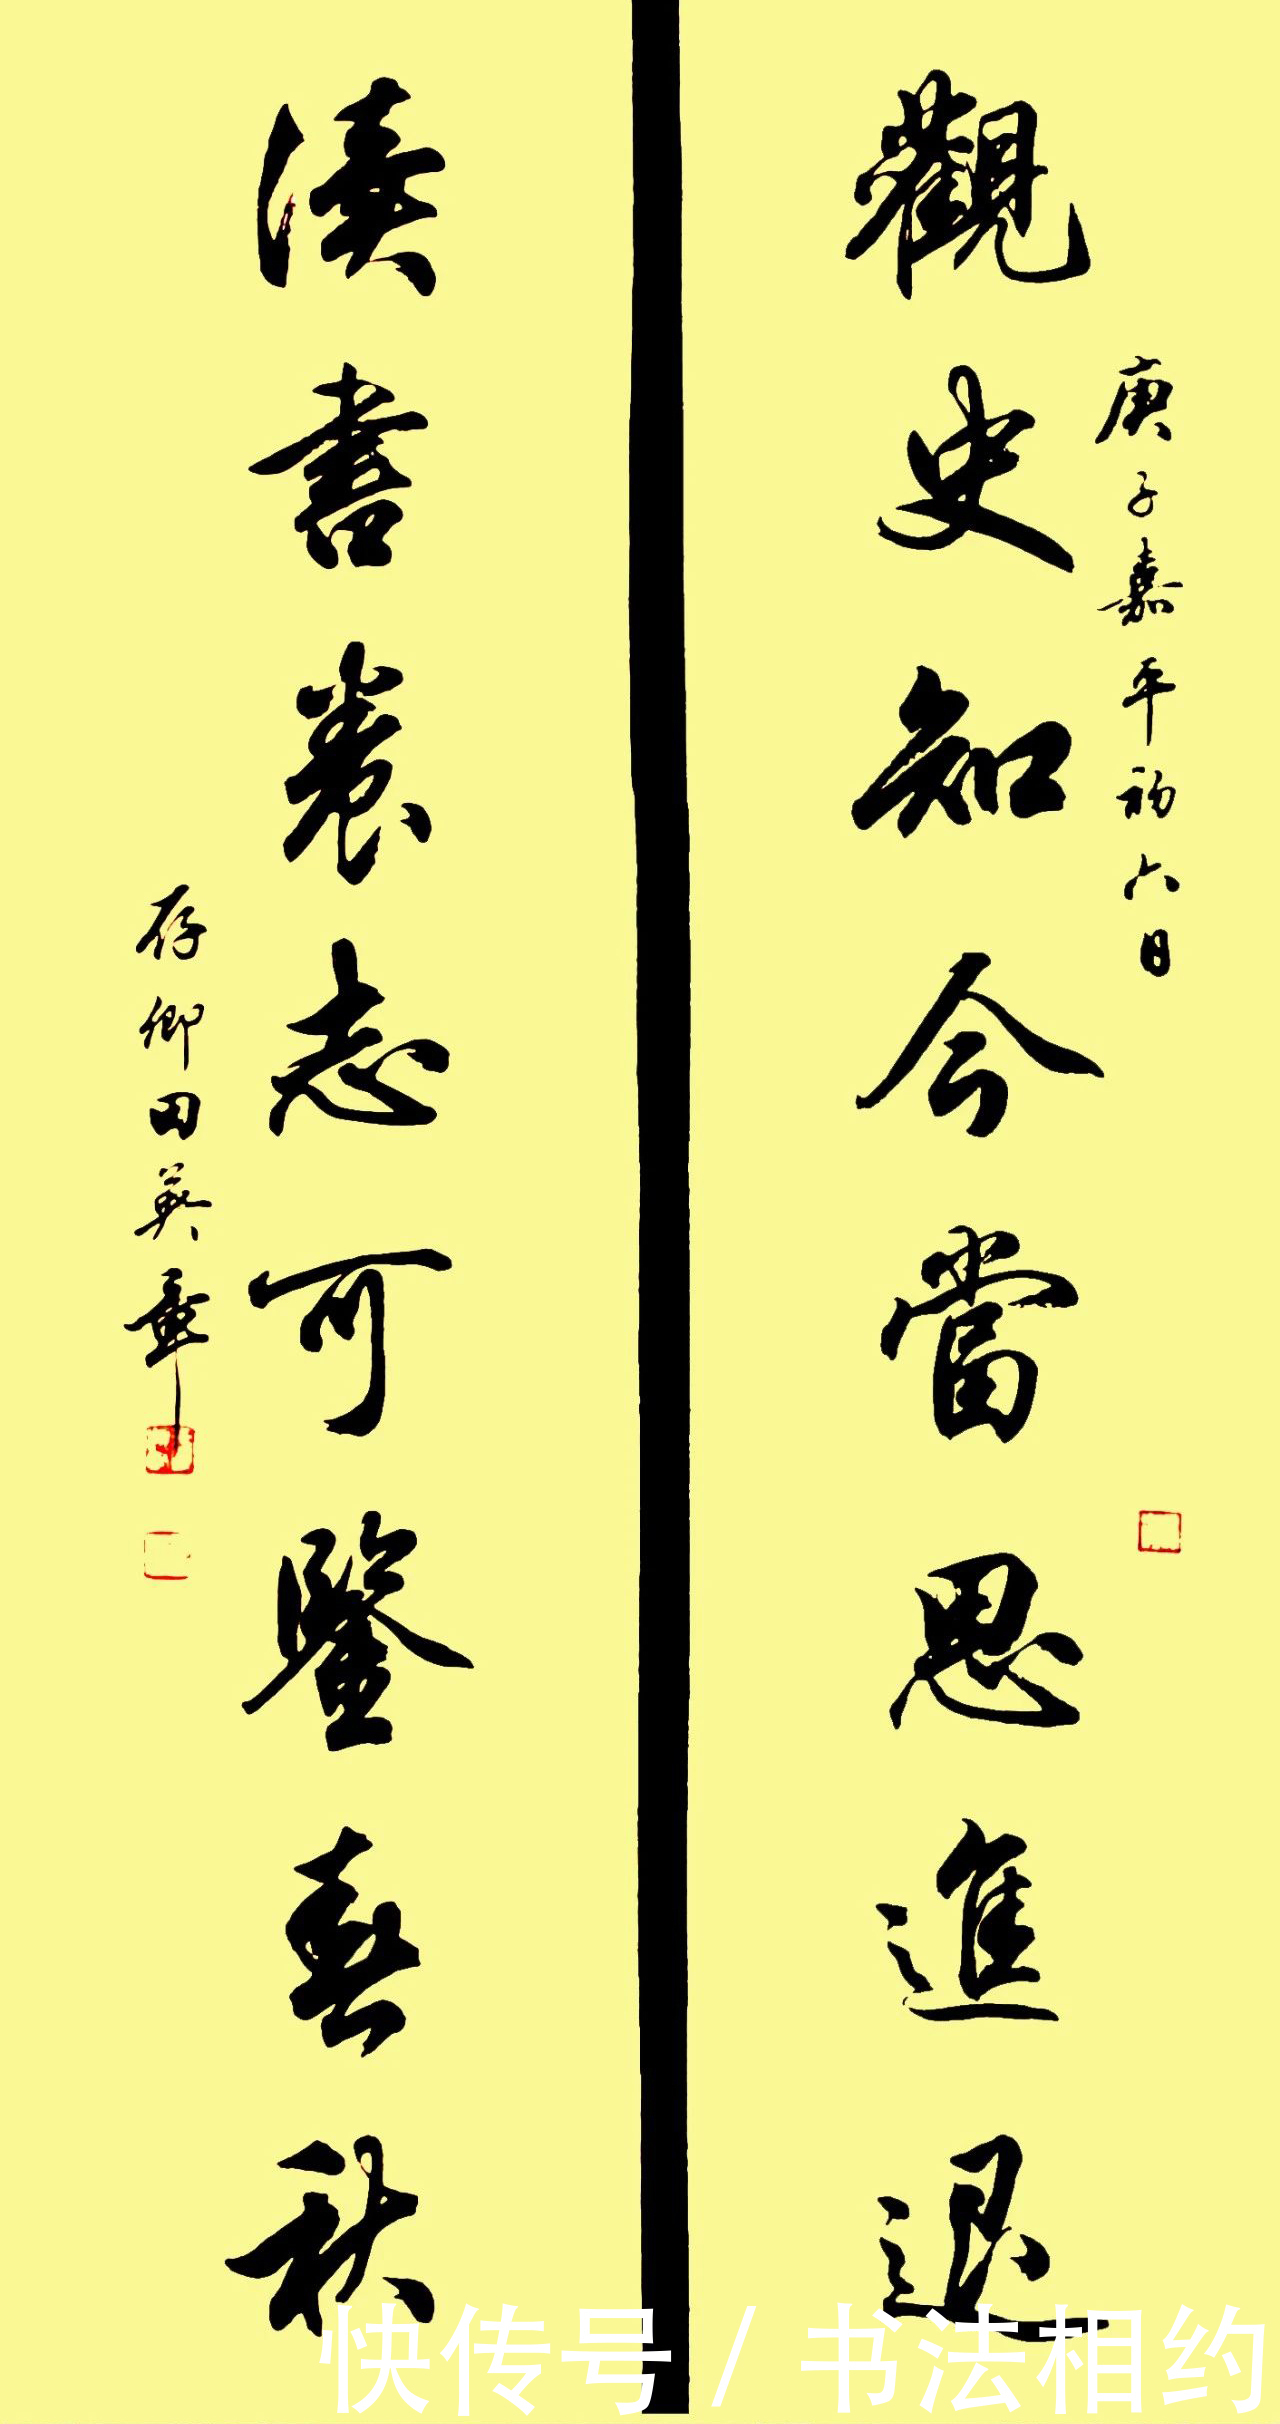 庚子嘉平初六日
觀史知今當思進退
讀書養志可鑒春秋
存卿田英章
快传号/书法相约